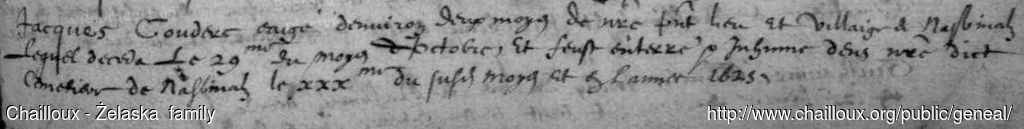 Jacques Couderc eagé denviron deux moys de nre pnt lieu Et Villaige de Nasbinalz
Lequel deceda Le 29me du moys Doctobre, Et feust enterré & Inhumé dens nre dict
Cimetiere de Nasbinalz le xxxme du susd moys Et Lannee 1625.
Chailloux - Żelaska family
http://www.chailloux.org/public/geneal/